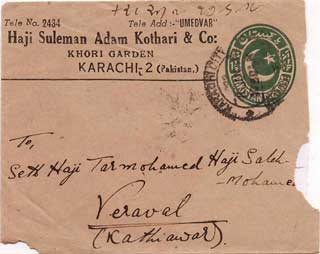 Tele No. 2434
Tele Add:- "UMEDVAR"
Haji Suleman Adam Kothari & Co:
KHORI GARDEN
KARACHI-2 (Pakistan)
PAKISTAN
To,
Seth Haji Tarmohamed Haji Saleh
- Mohame
Veraval
(Kathiawar).